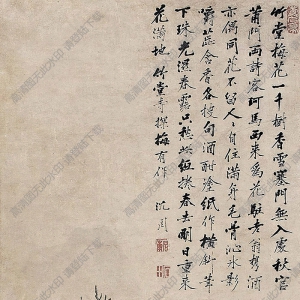 竹堂梅花一千樹香雪塞無入處秋官
黃門兩詩客珂馬西來為花駐老翁攜酒
亦偶同花不留人人自住滿身毛骨沁冰影
嚼蕊含香各搜句酒酣塗紙作橫斜筆
下珠光濕春露只愁此紙捲春去明日重來
花滿地 竹堂寺探梅有作
沈周